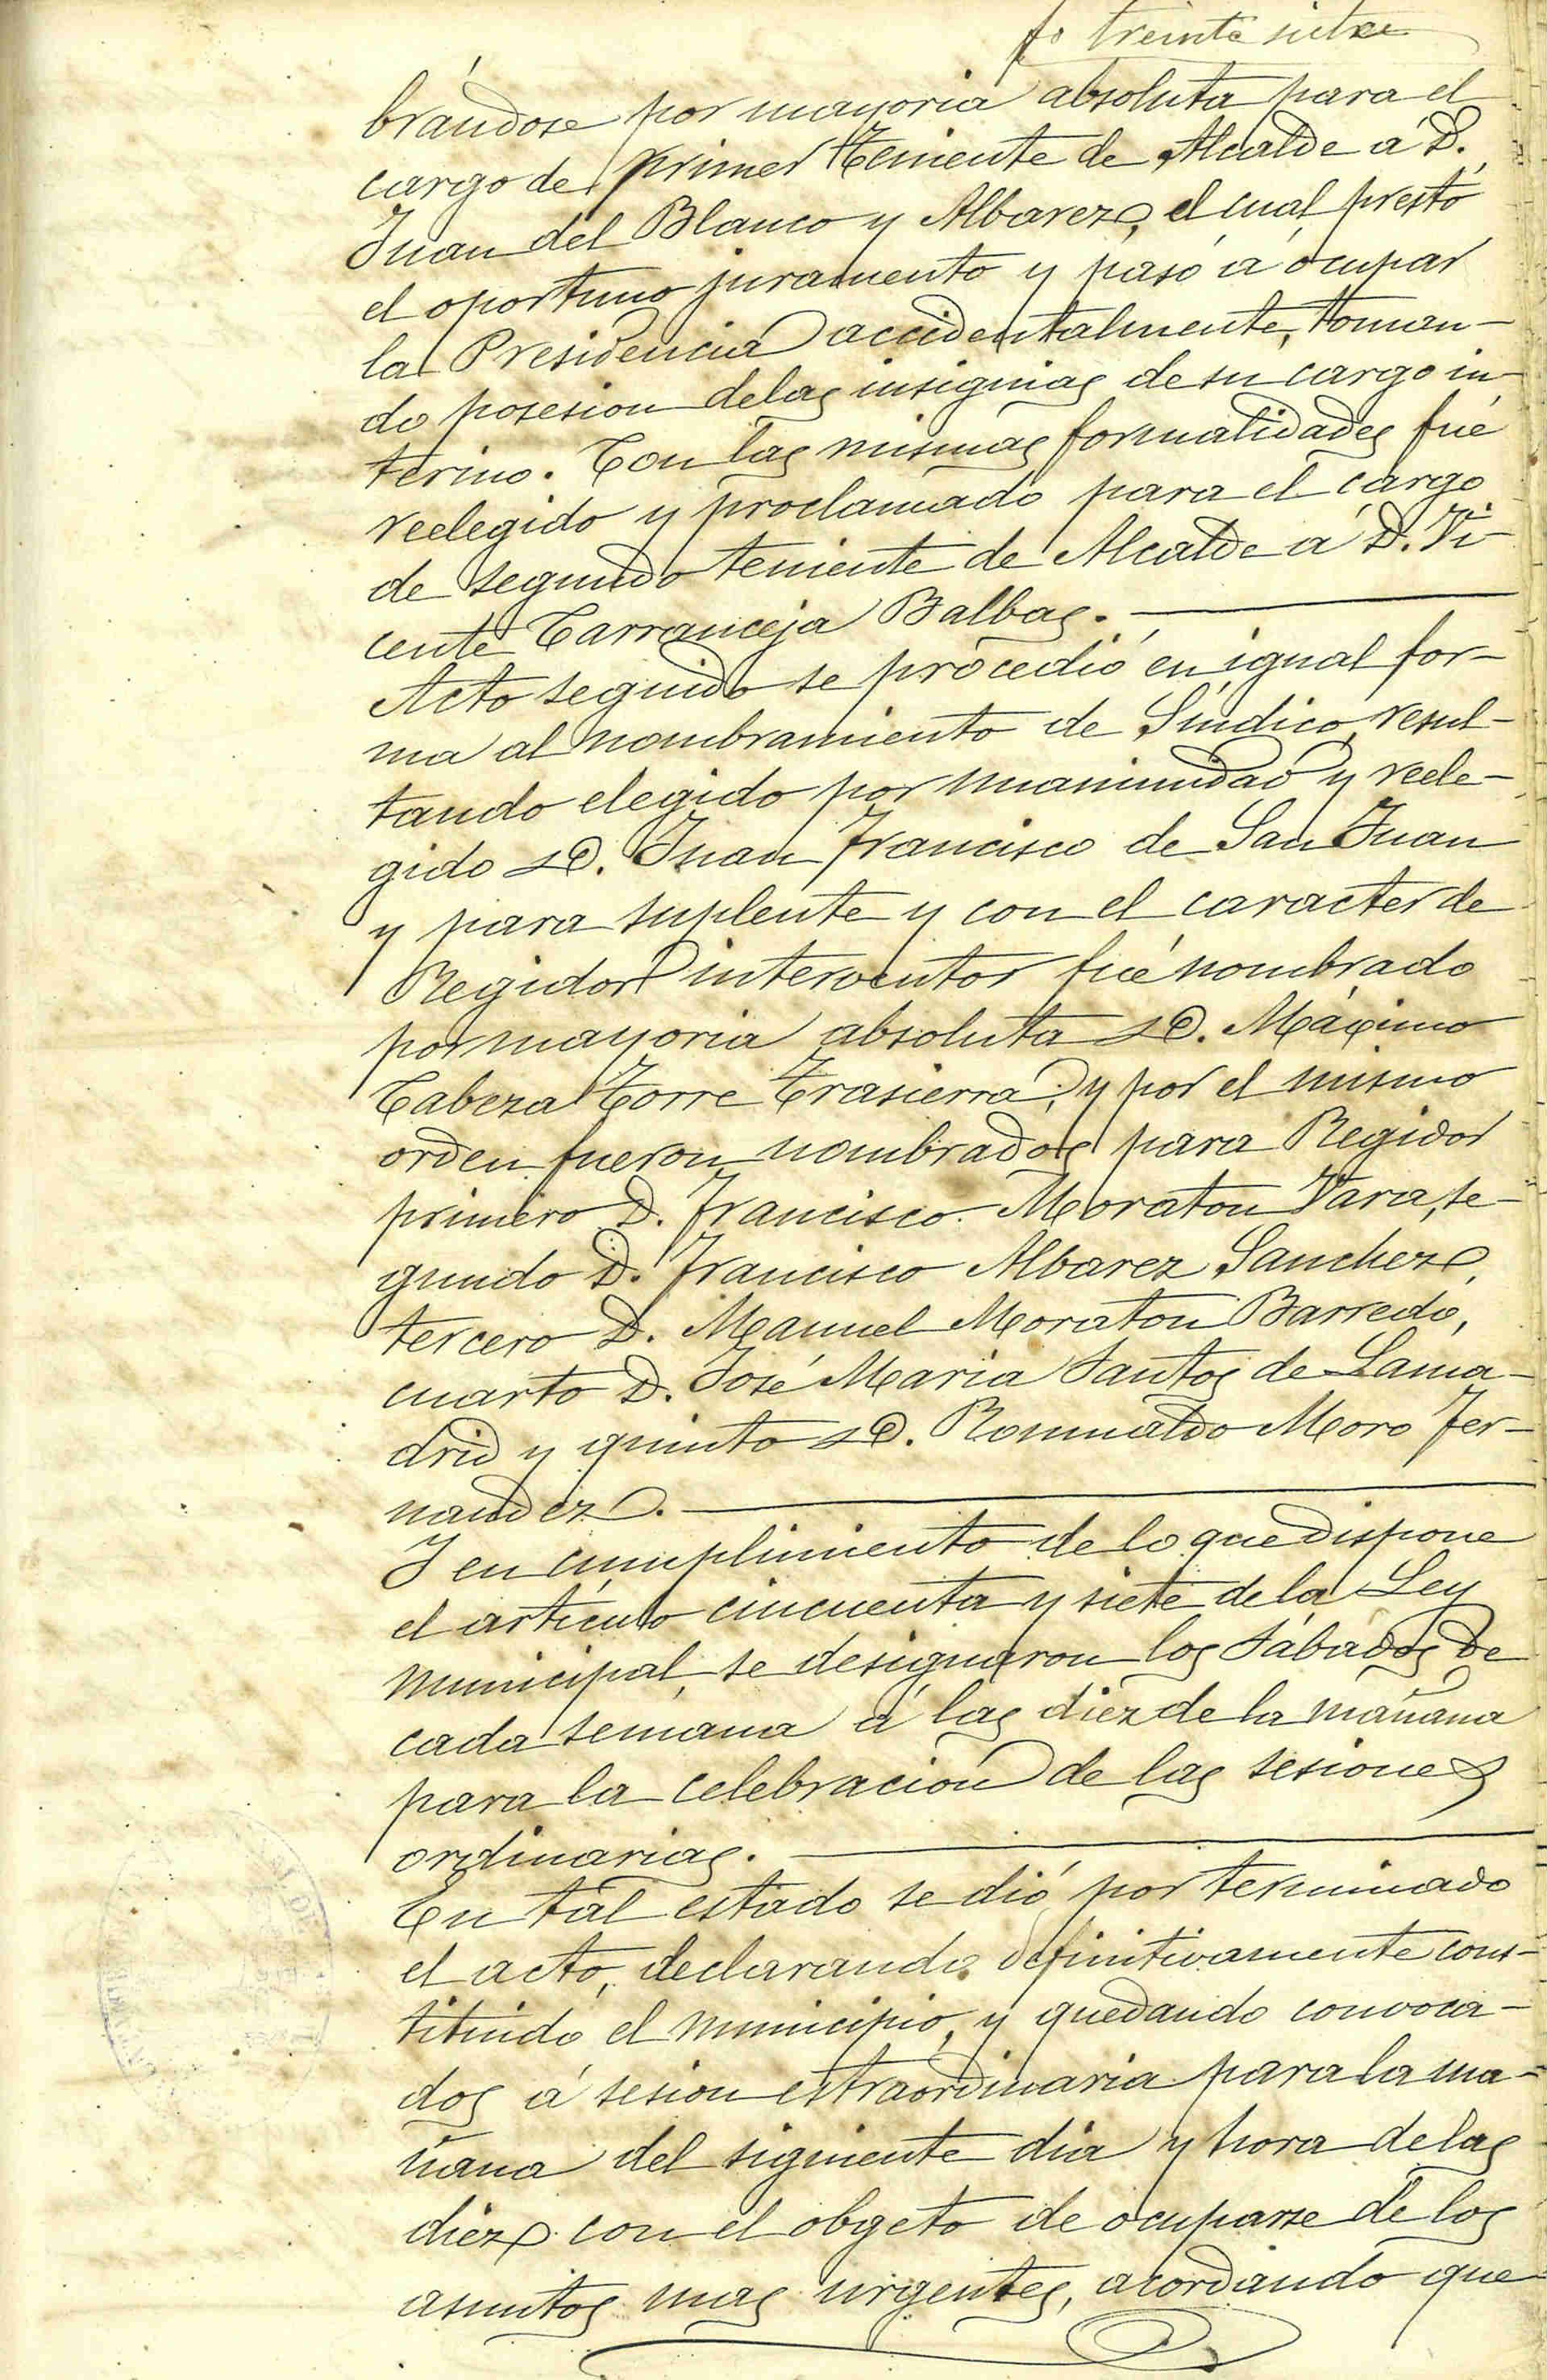 fo treinta siete
brándose por mayoria absoluta para el
cargo de primer Teniente de Alcalde a D.
Juan del Blanco y Albarez, el cual prestó
el oportuno juramento y pasó á ocupar
la Presidencia accidentalmente, toman-
do posesion de las insignias de su cargo in-
terino. Con las mismas formalidades fué
reelegido y proclamado para el cargo
de segundo teniente de Alcalde á D. Vi-
cente Carranceja Balbas.
Acto seguido se procedió en igual for-
ma al nombramiento de Síndico, resul-
tando elegido por unanimidad y reele-
gido D. Juan Francisco de San Juan
y para suplente y con el caracter de
Regidor interventor fué nombrado
por mayoria absoluta D. Máximo
Cabeza Torre Trasierra, y por el mismo
orden fueron nombrados para Regidor
primero D. Francisco Moraton Vara, se-
gundo D. Francisco Albarez Sanchez,
tercero D. Manuel Moraton Barredo,
cuarto D. José Maria Santos de Lama-
drid y quinto D. Romualdo Moro Fer-
nandez.
Y en cumplimiento de lo que dispone
el artículo cincuenta y siete de la Ley
municipal, se designaron los Sábados de
cada semana á las diez de la mañana
para la celebración de las sesiones
ordinarias.
En tal estado se dió por terminado
el acto, declarando definitivamente cons-
tituido el municipio, y quedando convoca-
dos á sesion estraordinaria para la ma-
ñana del siguiente dia y hora de las
diez con el obgeto de ocuparse de los
asuntos mas urgentes, acordando que